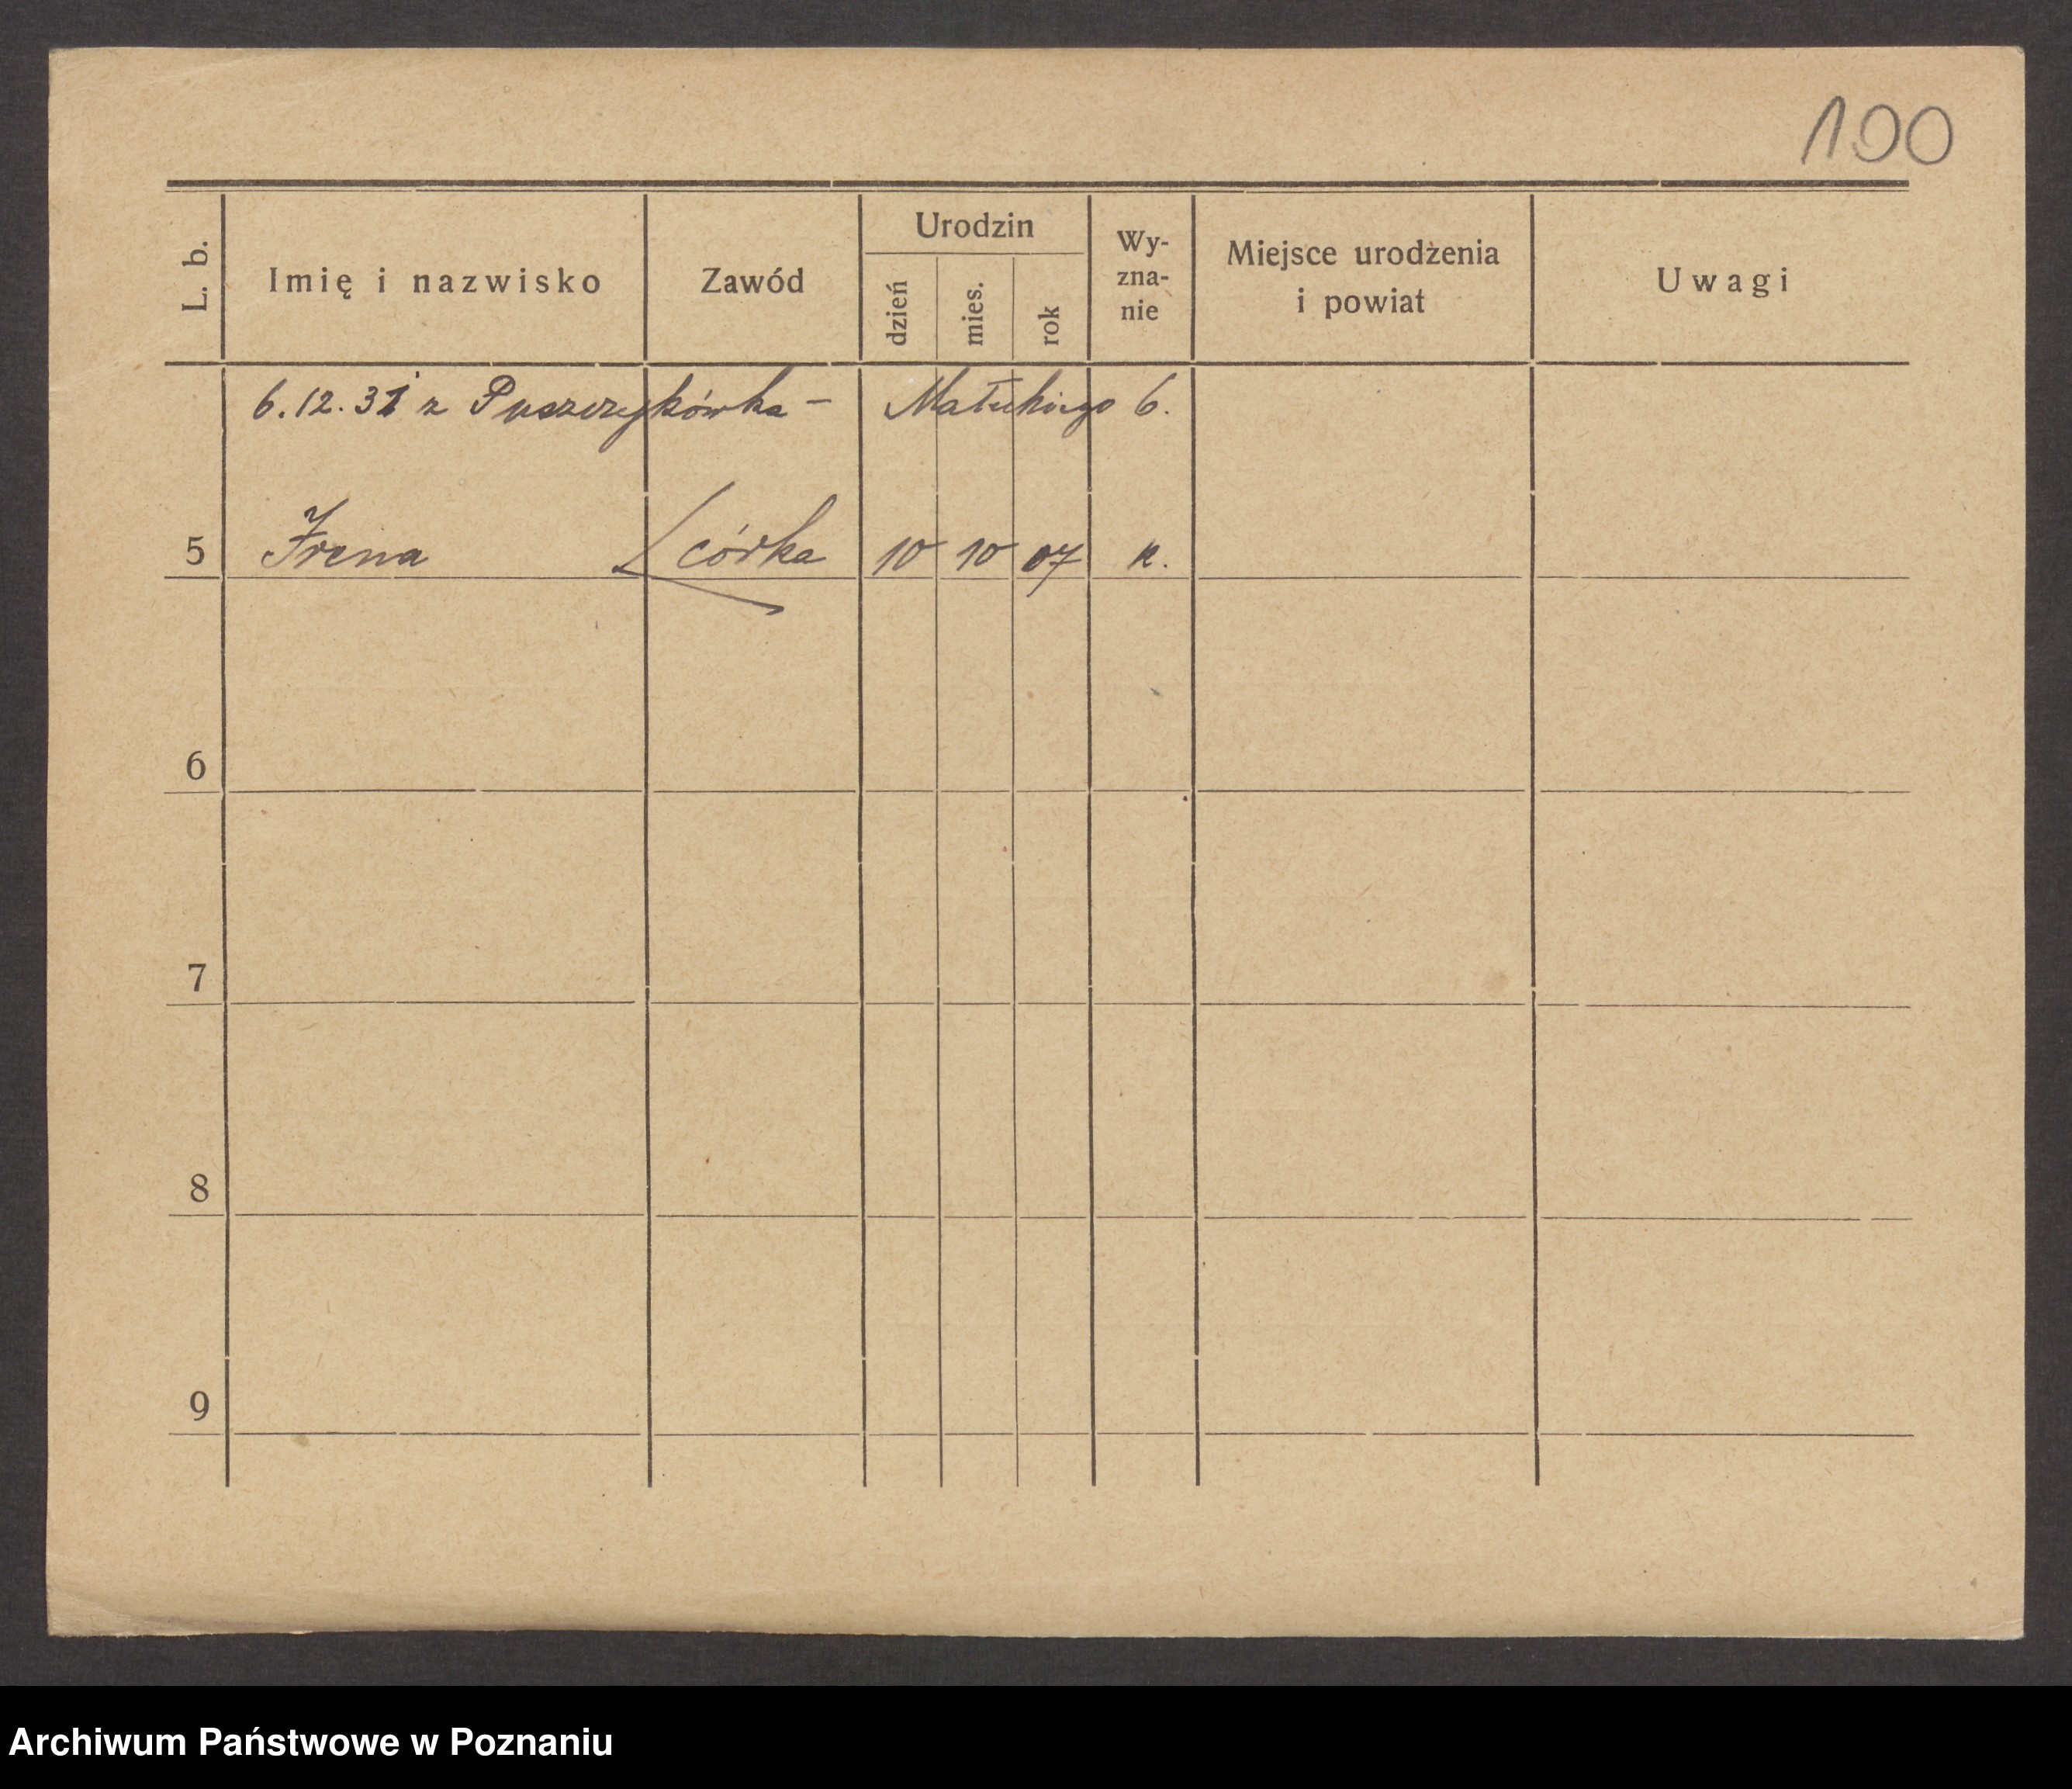 100
L. b. Imię i nazwisko Zawód Urodzin dzień mies. rok Wy-
zna-
nie Miejsce urodzenia
i powiat Uwagi
6.12.31 z Puszczykówka – Małeckiego 6.
5 Irena córka 10 10 07 k.
6
7
8
9
Archiwum Państwowe w Poznaniu